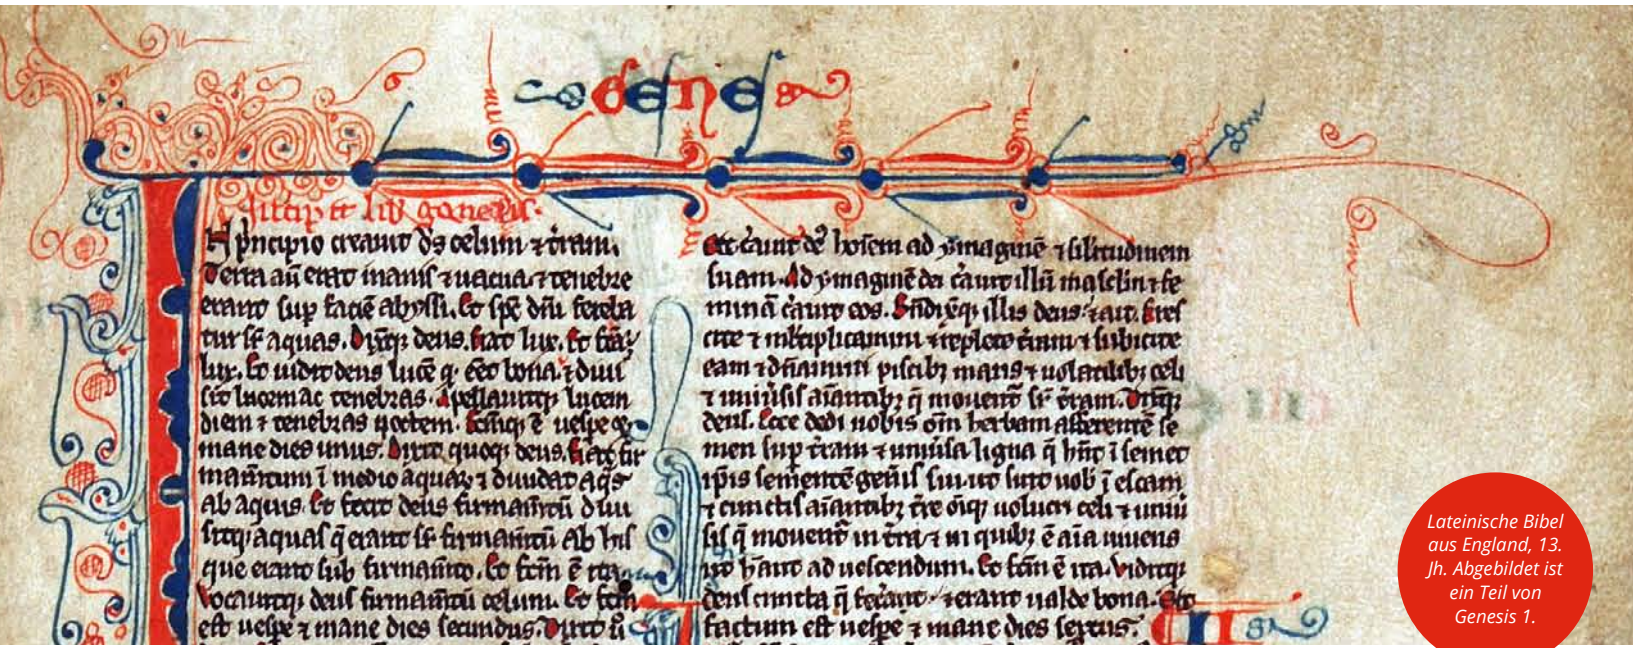 GENE
Incipit lib genesis.
N p̾ncipio creauit d̄s celum ⁊ t̾ram.
Terra aū erat inanis ⁊ uacua. ⁊ tenebre
erant sup faciē abyssi. Et sp̄c dn̄i fereba
tur sr̄ aquas. Dixitq; deus. fiat lux. Et fc̄a
lux. Et uidit deus lucē q eet bona. ⁊ diui
sit lucem ac tenebras. Apellauitq; lucem
diem ⁊ tenebras noctem. fc̄mq; ē uespe
mane dies unus. Dixit quoq; deus. fiat fir
mam̄tum ī medio aquaꝝ ⁊ diuidat aq̄s
ab aquis. Et fecit deus firmam̄tū diui
sitq; aquas q̄ erant sr̄ firmam̄tū ab his
que erant sub firmam̄to. Et fc̄m ē ita.
Vocauitq; deus firmam̄tū celum. Et fc̄m
est uespe ⁊ mane dies secundus. Dixit ū
Et c̾auit de᷒ hoīem ad ymaginē ⁊ silitudinem
suam. Ad ymaginē dei c̾auit illū masclm ⁊ fe
minā c̾auit eos. Bn̄dixq; illis deus. ⁊ ait. Cres
cite ⁊ mltiplicamini ⁊ replete t̾ram ⁊ subicite
eam ⁊ dn̄amini piscibꝫ maris ⁊ uolatilibꝫ celi
⁊ uniu̾sis aīantibꝫ q̄ mouent̾ sr̄ t̾ram. Dixitq;
deus. Ecce dedi uobis om̄ herbam afferentē se
men sup t̾ram ⁊ uniu̾sa ligna q̄ hn̄t ī semet
ip̄is sementē gen̾is sui. ut sint uob̄ ī escam
⁊ cunctis aīantibꝫ t̾re om̄iq; uolucri celi ⁊ uniu̾
sis q̄ mouent̾ in t̾ra ⁊ in quibꝫ ē aīa uiuens
ut h̄ant ad uescendum. Et fc̄m ē ita. Viditq;
deus cuncta q̄ fec̾at ⁊ erant ualde bona. Et
factum est uespe ⁊ mane dies sextus.
Lateinische Bibel
aus England, 13.
Jh. Abgebildet ist
ein Teil von
Genesis 1.